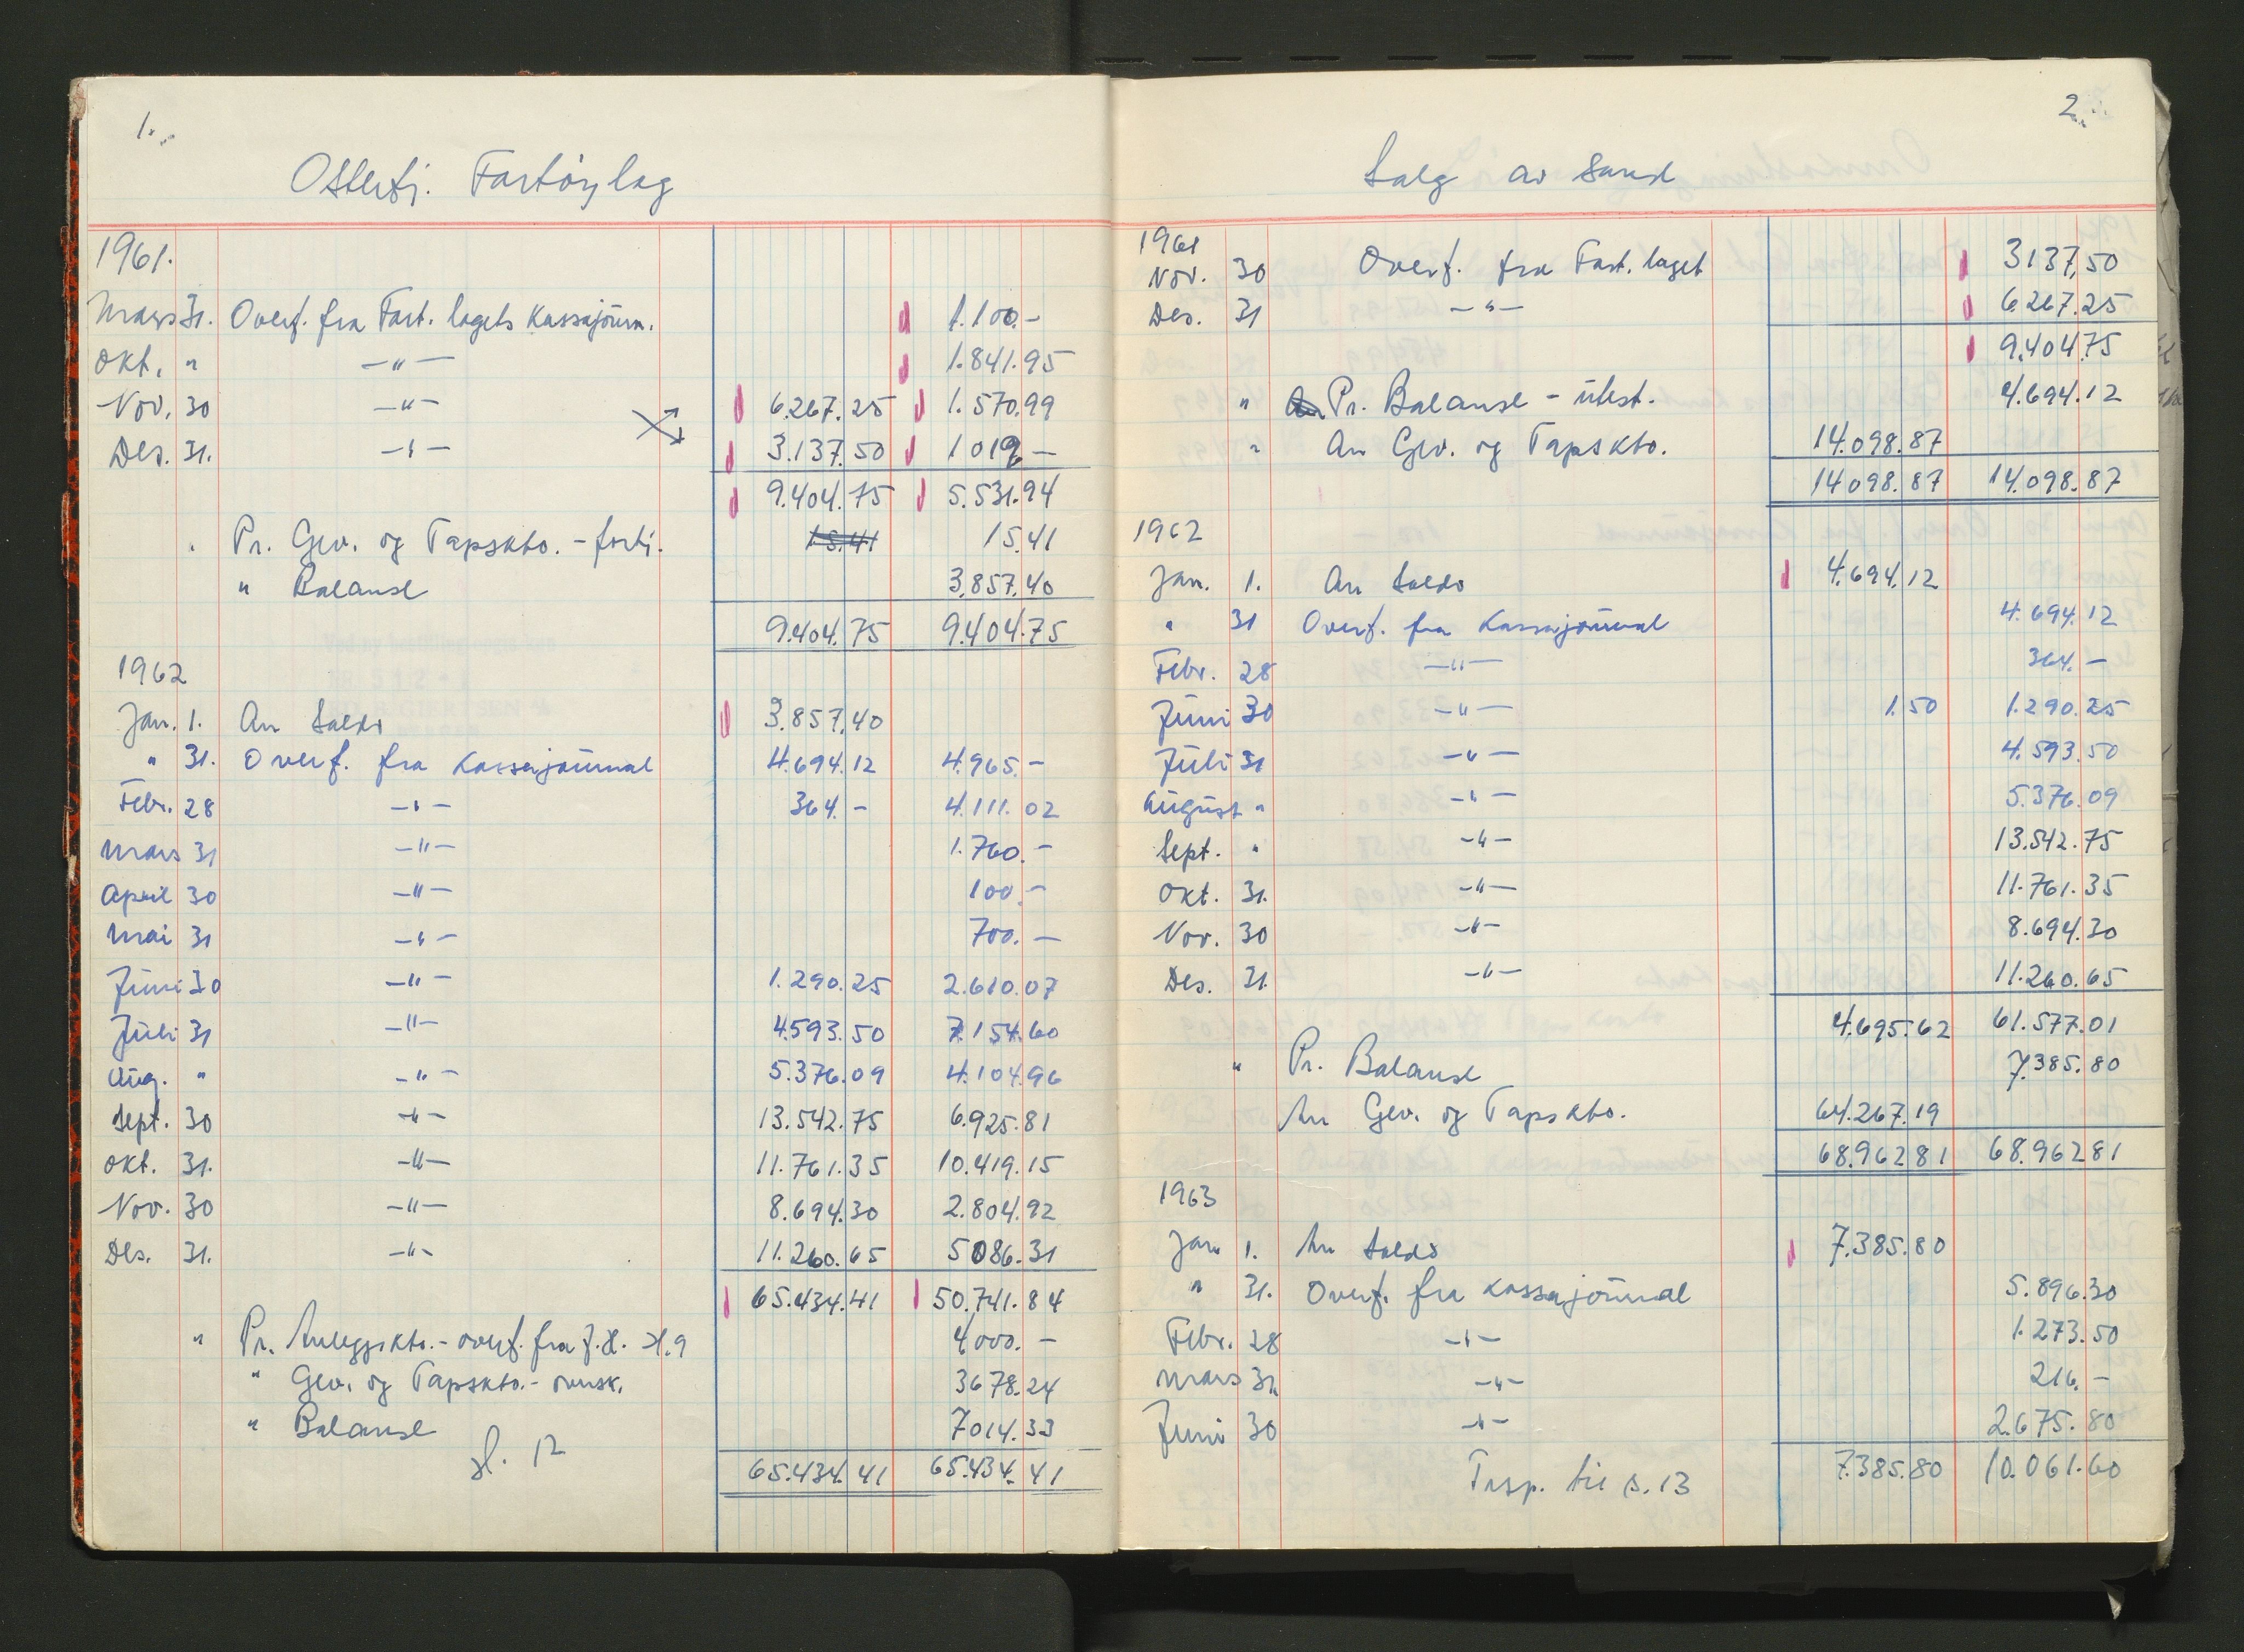 1.
Osterfj. Fartöylag
1961.
Mars 31. Overf. fra Fart. lagets Kassajourn. 1.100.-
Okt. " —"— 1.841.95
Nov. 30 —"— 6.267.25 1.570.99
Des. 31. —"— 3.137.50 1019.—
9.404.75 5.531.94
" Pr. Gev. og Tapskto. - forts. 15.41 15.41
" Balanse 3.857.40
9.404.75 9.404.75
1962
Jan. 1. An Saldo 3.857.40
" 31. Overf. fra Kassajournal 4.694.12 4.965.-
Febr. 28 —"— 364.- 4.111.02
Mars 31 —"— 1.760.-
April 30 —"— 100.-
Mai 31 —"— 700.—
Juni 30 —"— 1.290.25 2.610.07
Juli 31 —"— 4.593.50 7.154.60
Aug. " —"— 5.376.09 4.104.96
Sept. 30 —"— 13.542.75 6.925.81
Okt. 31. —"— 11.761.35 10.419.15
Nov. 30 —"— 8.694.30 2.804.92
Des. 31. —"— 11.260.65 5086.31
65.434.41 50.741.84
" Pr. Anleggskto. - overf. fra 4000.—
" Gev. og Tapskto. - 3678.24
" Balanse 7014.33
65.434.41 65.434.41
2.
Salg av Sand
1961
Nov. 30 Overf. fra Fart. laget 3137,50
Des. 31 —"— 6.267.25
9.404.75
" An Pr. Balanse - utest. 4.694.12
" An Gev. og Tapskto. 14.098.87
14098.87 14.098.87
1962
Jan. 1. An Saldo 4.694.12
" 31 Overf. fra Kassajournal 4.694.12
Febr. 28 —"— 364.-
Juni 30 —"— 1.50 1.290.25
Juli 31 —"— 4.593.50
August " —"— 5.376.09
Sept. " —"— 13.542.75
Okt. 31. —"— 11.761.35
Nov. 30 —"— 8.694.30
Des. 31. —"— 11.260.65
4.695.62 61.577.01
" Pr. Balanse 7.385.80
An Gev. og Tapskto. 64.267.19
68.962 81 68.962 81
1963
Jan 1. An Saldo 7.385.80
" 31. Overf. fra Kassajournal 5.896.30
Febr. 28 —"— 1.273.50
Mars 31. —"— 216.-
Juni 30 —"— 2.675.80
7.385.80 10.061.60
Trsp. til s. 13